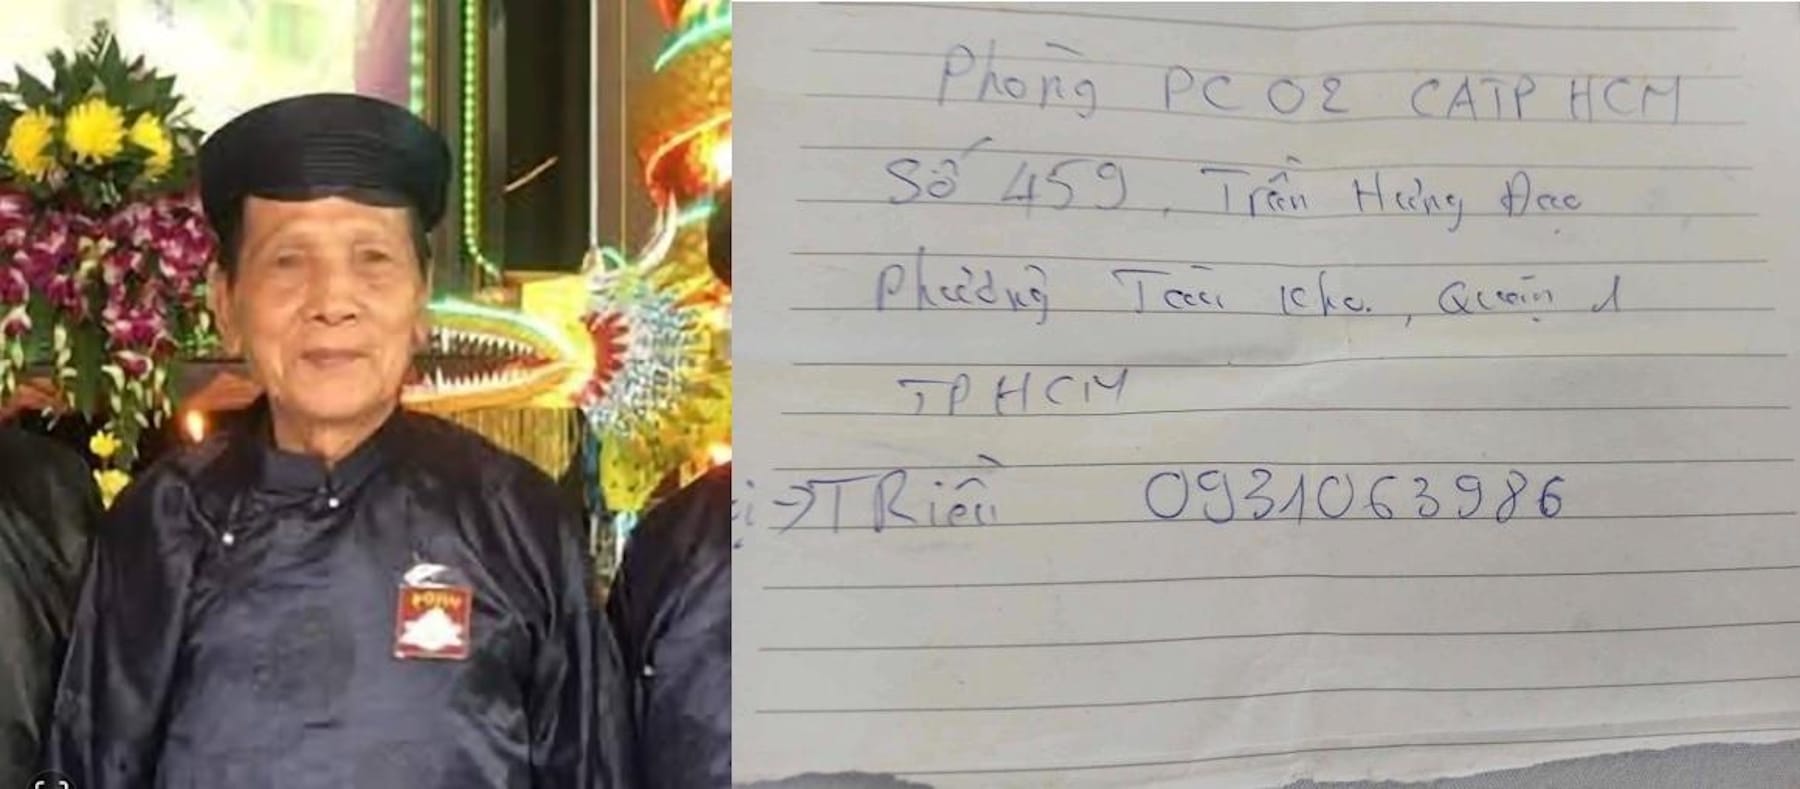 Phòng PC 02 CATP HCM
Số 459, Trần Hưng Đạo
Phường Cầu Kho, Quận 1
TP HCM
→ TRiều 0931063986